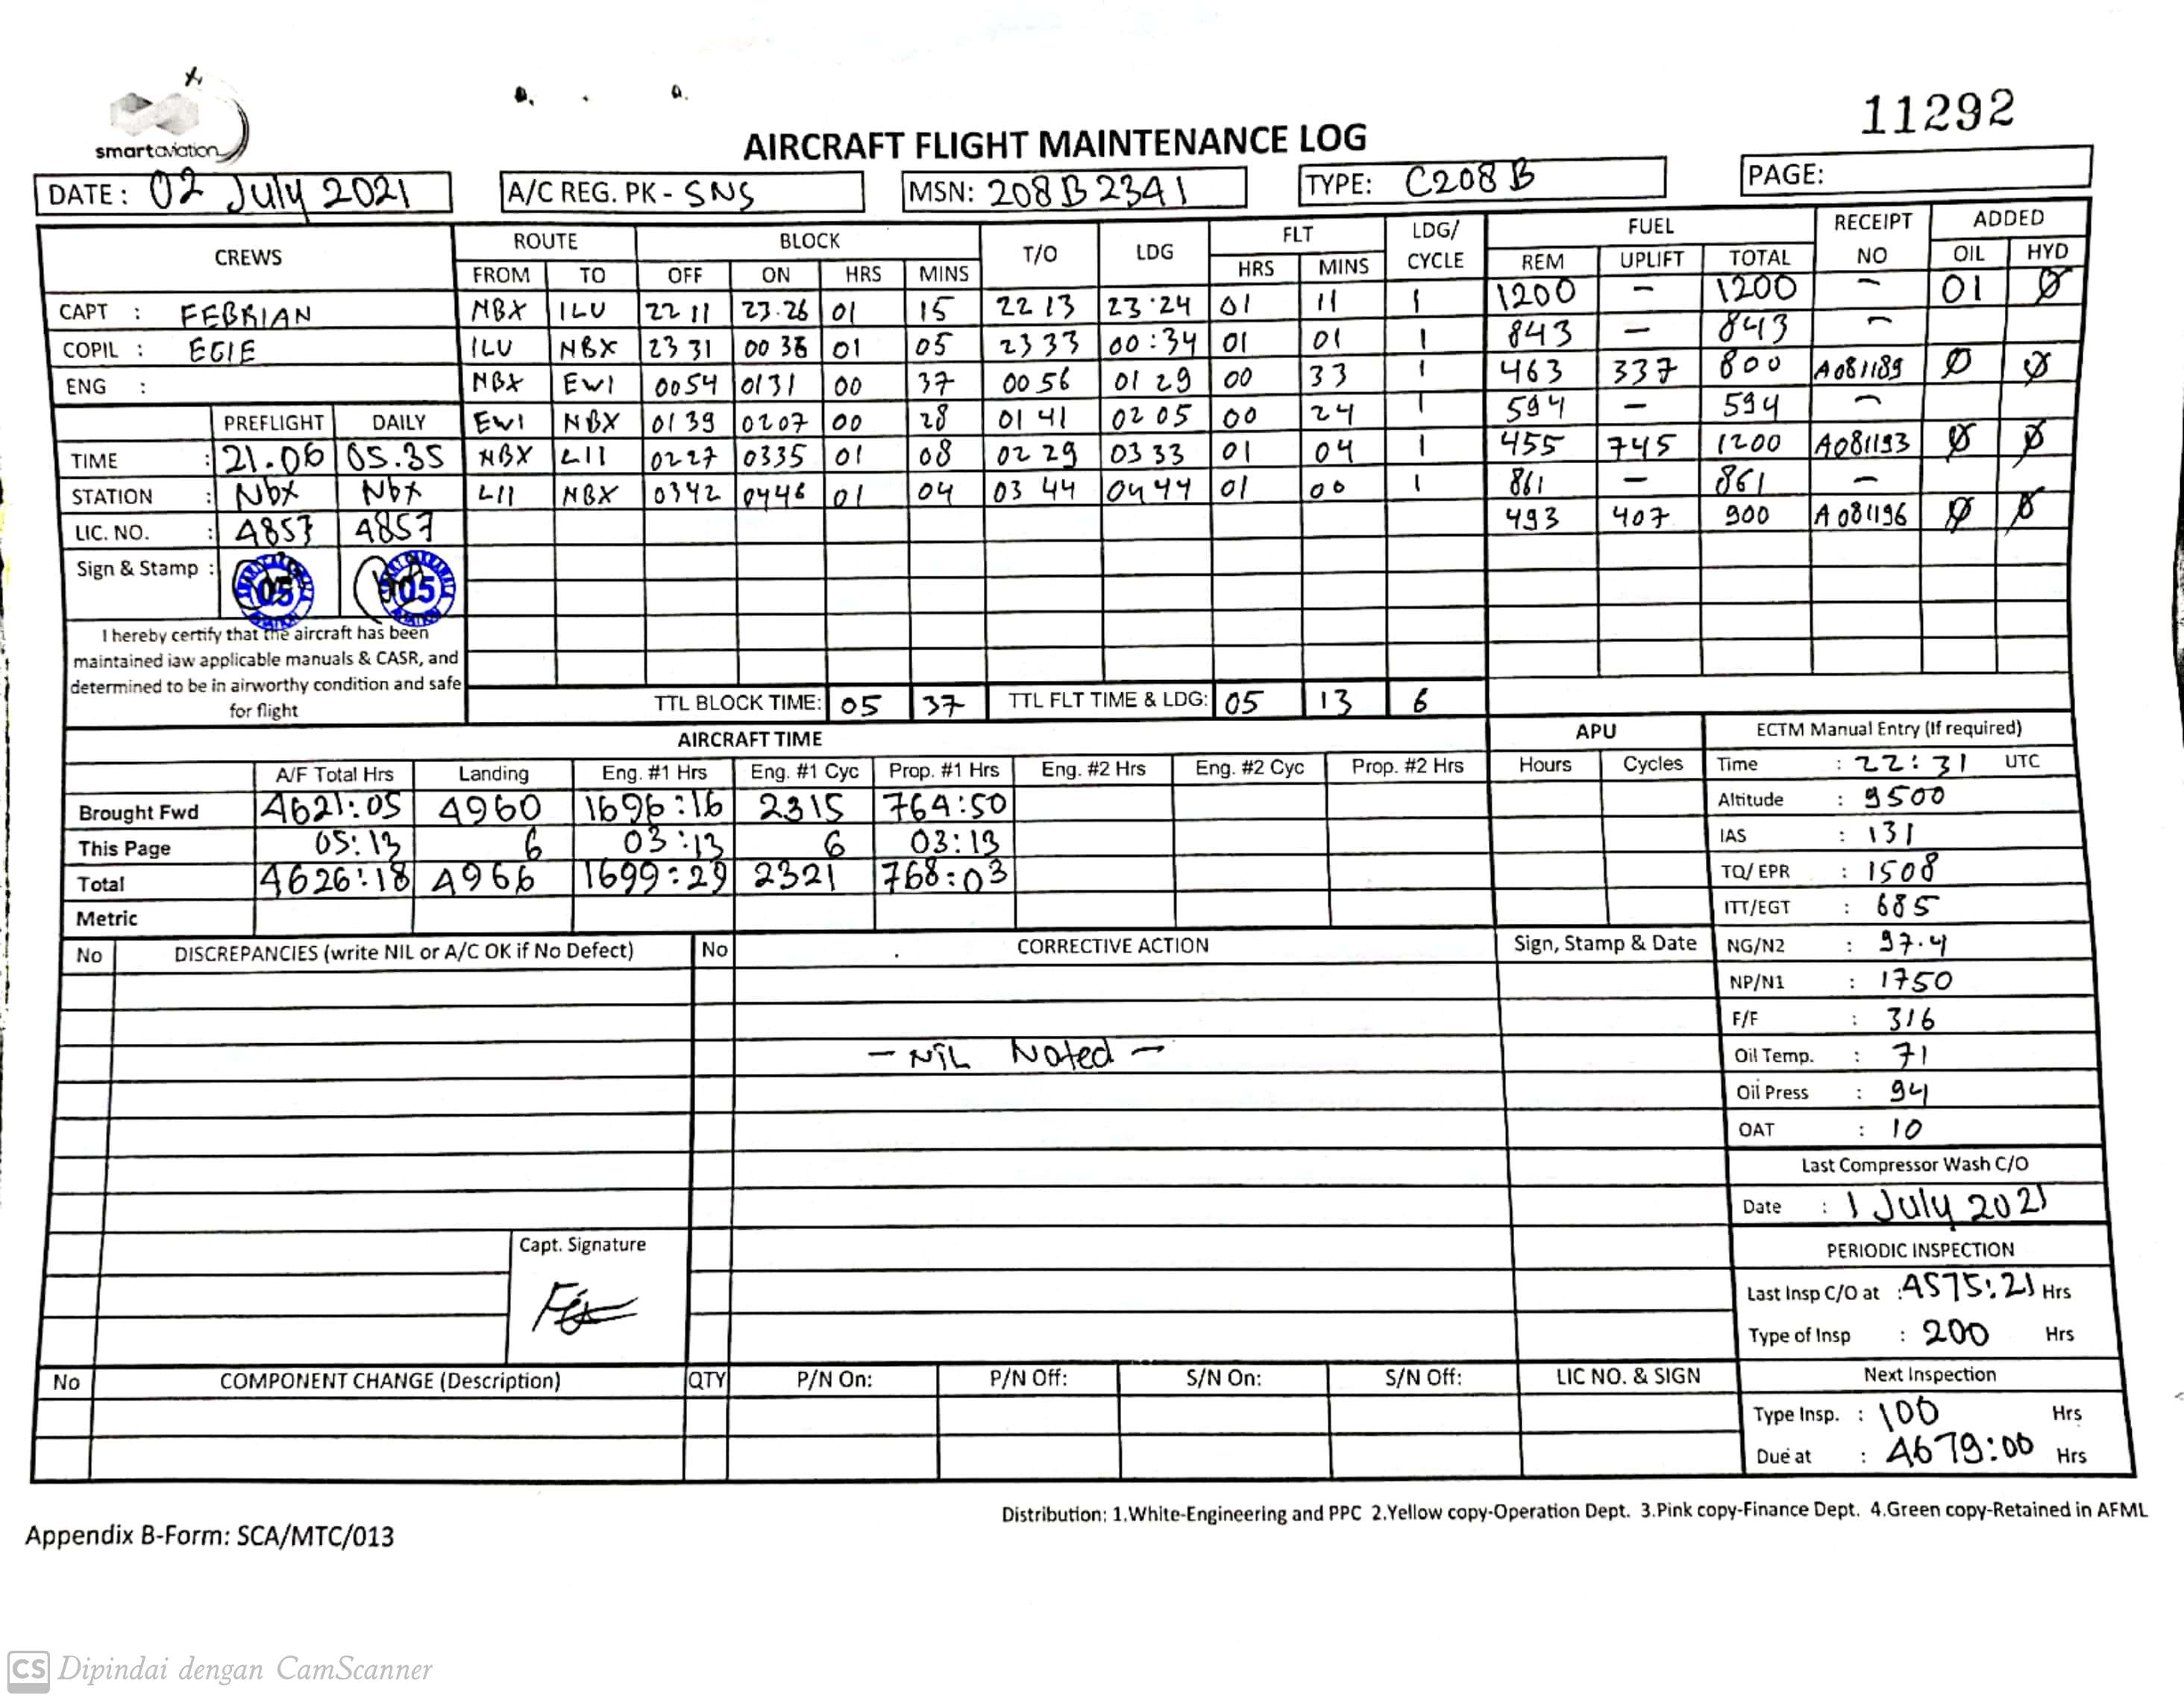 11292
smartaviation
AIRCRAFT FLIGHT MAINTENANCE LOG
DATE: 02 July 2021 A/C REG. PK - SNS MSN: 208B2341 TYPE: C208B PAGE:
CREWS ROUTE BLOCK T/O LDG FLT LDG/ CYCLE FUEL RECEIPT NO ADDED
FROM TO OFF ON HRS MINS HRS MINS REM UPLIFT TOTAL OIL HYD
CAPT : FEBRIAN NBX ILU 22 11 23.26 01 15 22 13 23:24 01 11 1 1200 - 1200 - 01 Ø
COPIL : EGIE ILU NBX 23 31 00 36 01 05 23 33 00:34 01 01 1 843 - 843 -
ENG : NBX EWI 0054 0131 00 37 00 56 01 29 00 33 1 463 337 800 A081189 Ø Ø
PREFLIGHT DAILY EWI NBX 01 39 0207 00 28 01 41 02 05 00 24 1 594 - 594 -
TIME : 21.06 05.35 NBX LII 0227 0335 01 08 02 29 03 33 01 04 1 455 745 1200 A081193 Ø Ø
STATION : Nbx Nbx LII NBX 0342 0446 01 04 03 44 04 44 01 00 1 861 - 861 -
LIC. NO. : 4857 4857 493 407 900 A081196 Ø Ø
Sign & Stamp : 05 05
I hereby certify that the aircraft has been
maintained iaw applicable manuals & CASR, and
determined to be in airworthy condition and safe
for flight
TTL BLOCK TIME: 05 37 TTL FLT TIME & LDG: 05 13 6
AIRCRAFT TIME APU ECTM Manual Entry (If required)
A/F Total Hrs Landing Eng. #1 Hrs Eng. #1 Cyc Prop. #1 Hrs Eng. #2 Hrs Eng. #2 Cyc Prop. #2 Hrs Hours Cycles Time : 22:31 UTC
Brought Fwd 4621:05 4960 1696:16 2315 764:50 Altitude : 9500
This Page 05:13 6 03:13 6 03:13 IAS : 131
Total 4626:18 4966 1699:29 2321 768:03 TQ/ EPR : 1508
Metric ITT/EGT : 685
No DISCREPANCIES (write NIL or A/C OK if No Defect) No CORRECTIVE ACTION Sign, Stamp & Date NG/N2 : 97.4
NP/N1 : 1750
F/F : 316
- NIL Noted - Oil Temp. : 71
Oil Press : 94
OAT : 10
Last Compressor Wash C/O
Date : 1 July 2021
Capt. Signature PERIODIC INSPECTION
Last Insp C/O at : 4575:21 Hrs
Type of Insp : 200 Hrs
No COMPONENT CHANGE (Description) QTY P/N On: P/N Off: S/N On: S/N Off: LIC NO. & SIGN Next Inspection
Type Insp. : 100 Hrs
Due at : 4679:00 Hrs
Distribution: 1.White-Engineering and PPC 2.Yellow copy-Operation Dept. 3.Pink copy-Finance Dept. 4.Green copy-Retained in AFML
Appendix B-Form: SCA/MTC/013
CS Dipindai dengan CamScanner